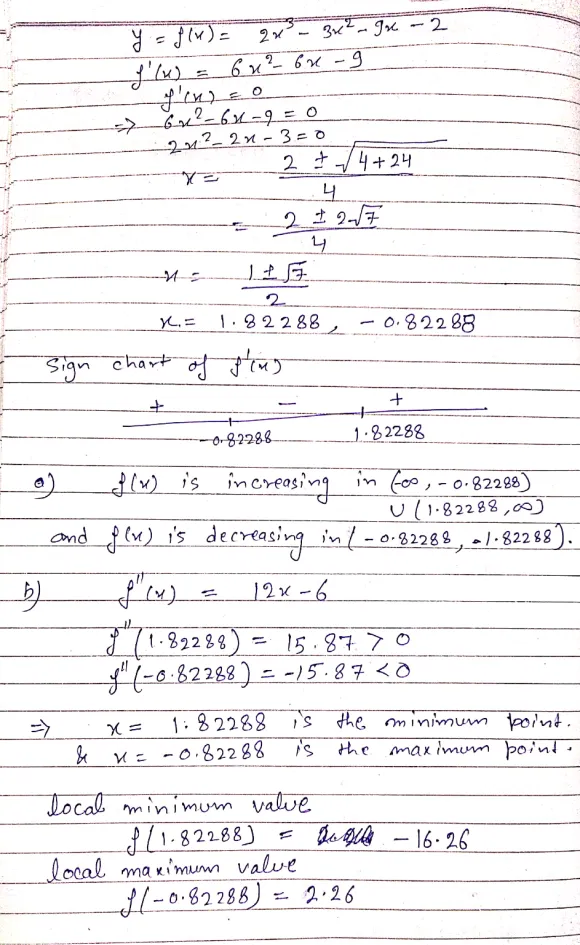 y = f(x) = 2x³ - 3x² - 9x - 2
f'(x) = 6x² - 6x - 9
f'(x) = 0
⇒ 6x² - 6x - 9 = 0
2x² - 2x - 3 = 0
x = (2 ± √(4+24))/4
= (2 ± 2√7)/4
x = (1 ± √7)/2
x = 1.82288, -0.82288
Sign chart of f'(x)
+ - +
-0.82288 1.82288
a) f(x) is increasing in (-∞, -0.82288)
∪ (1.82288, ∞)
and f(x) is decreasing in (-0.82288, 1.82288).
b) f''(x) = 12x - 6
f''(1.82288) = 15.87 > 0
f''(-0.82288) = -15.87 < 0
⇒ x = 1.82288 is the minimum point.
& x = -0.82288 is the maximum point.
local minimum value
f(1.82288) = -16.26
local maximum value
f(-0.82288) = 2.26